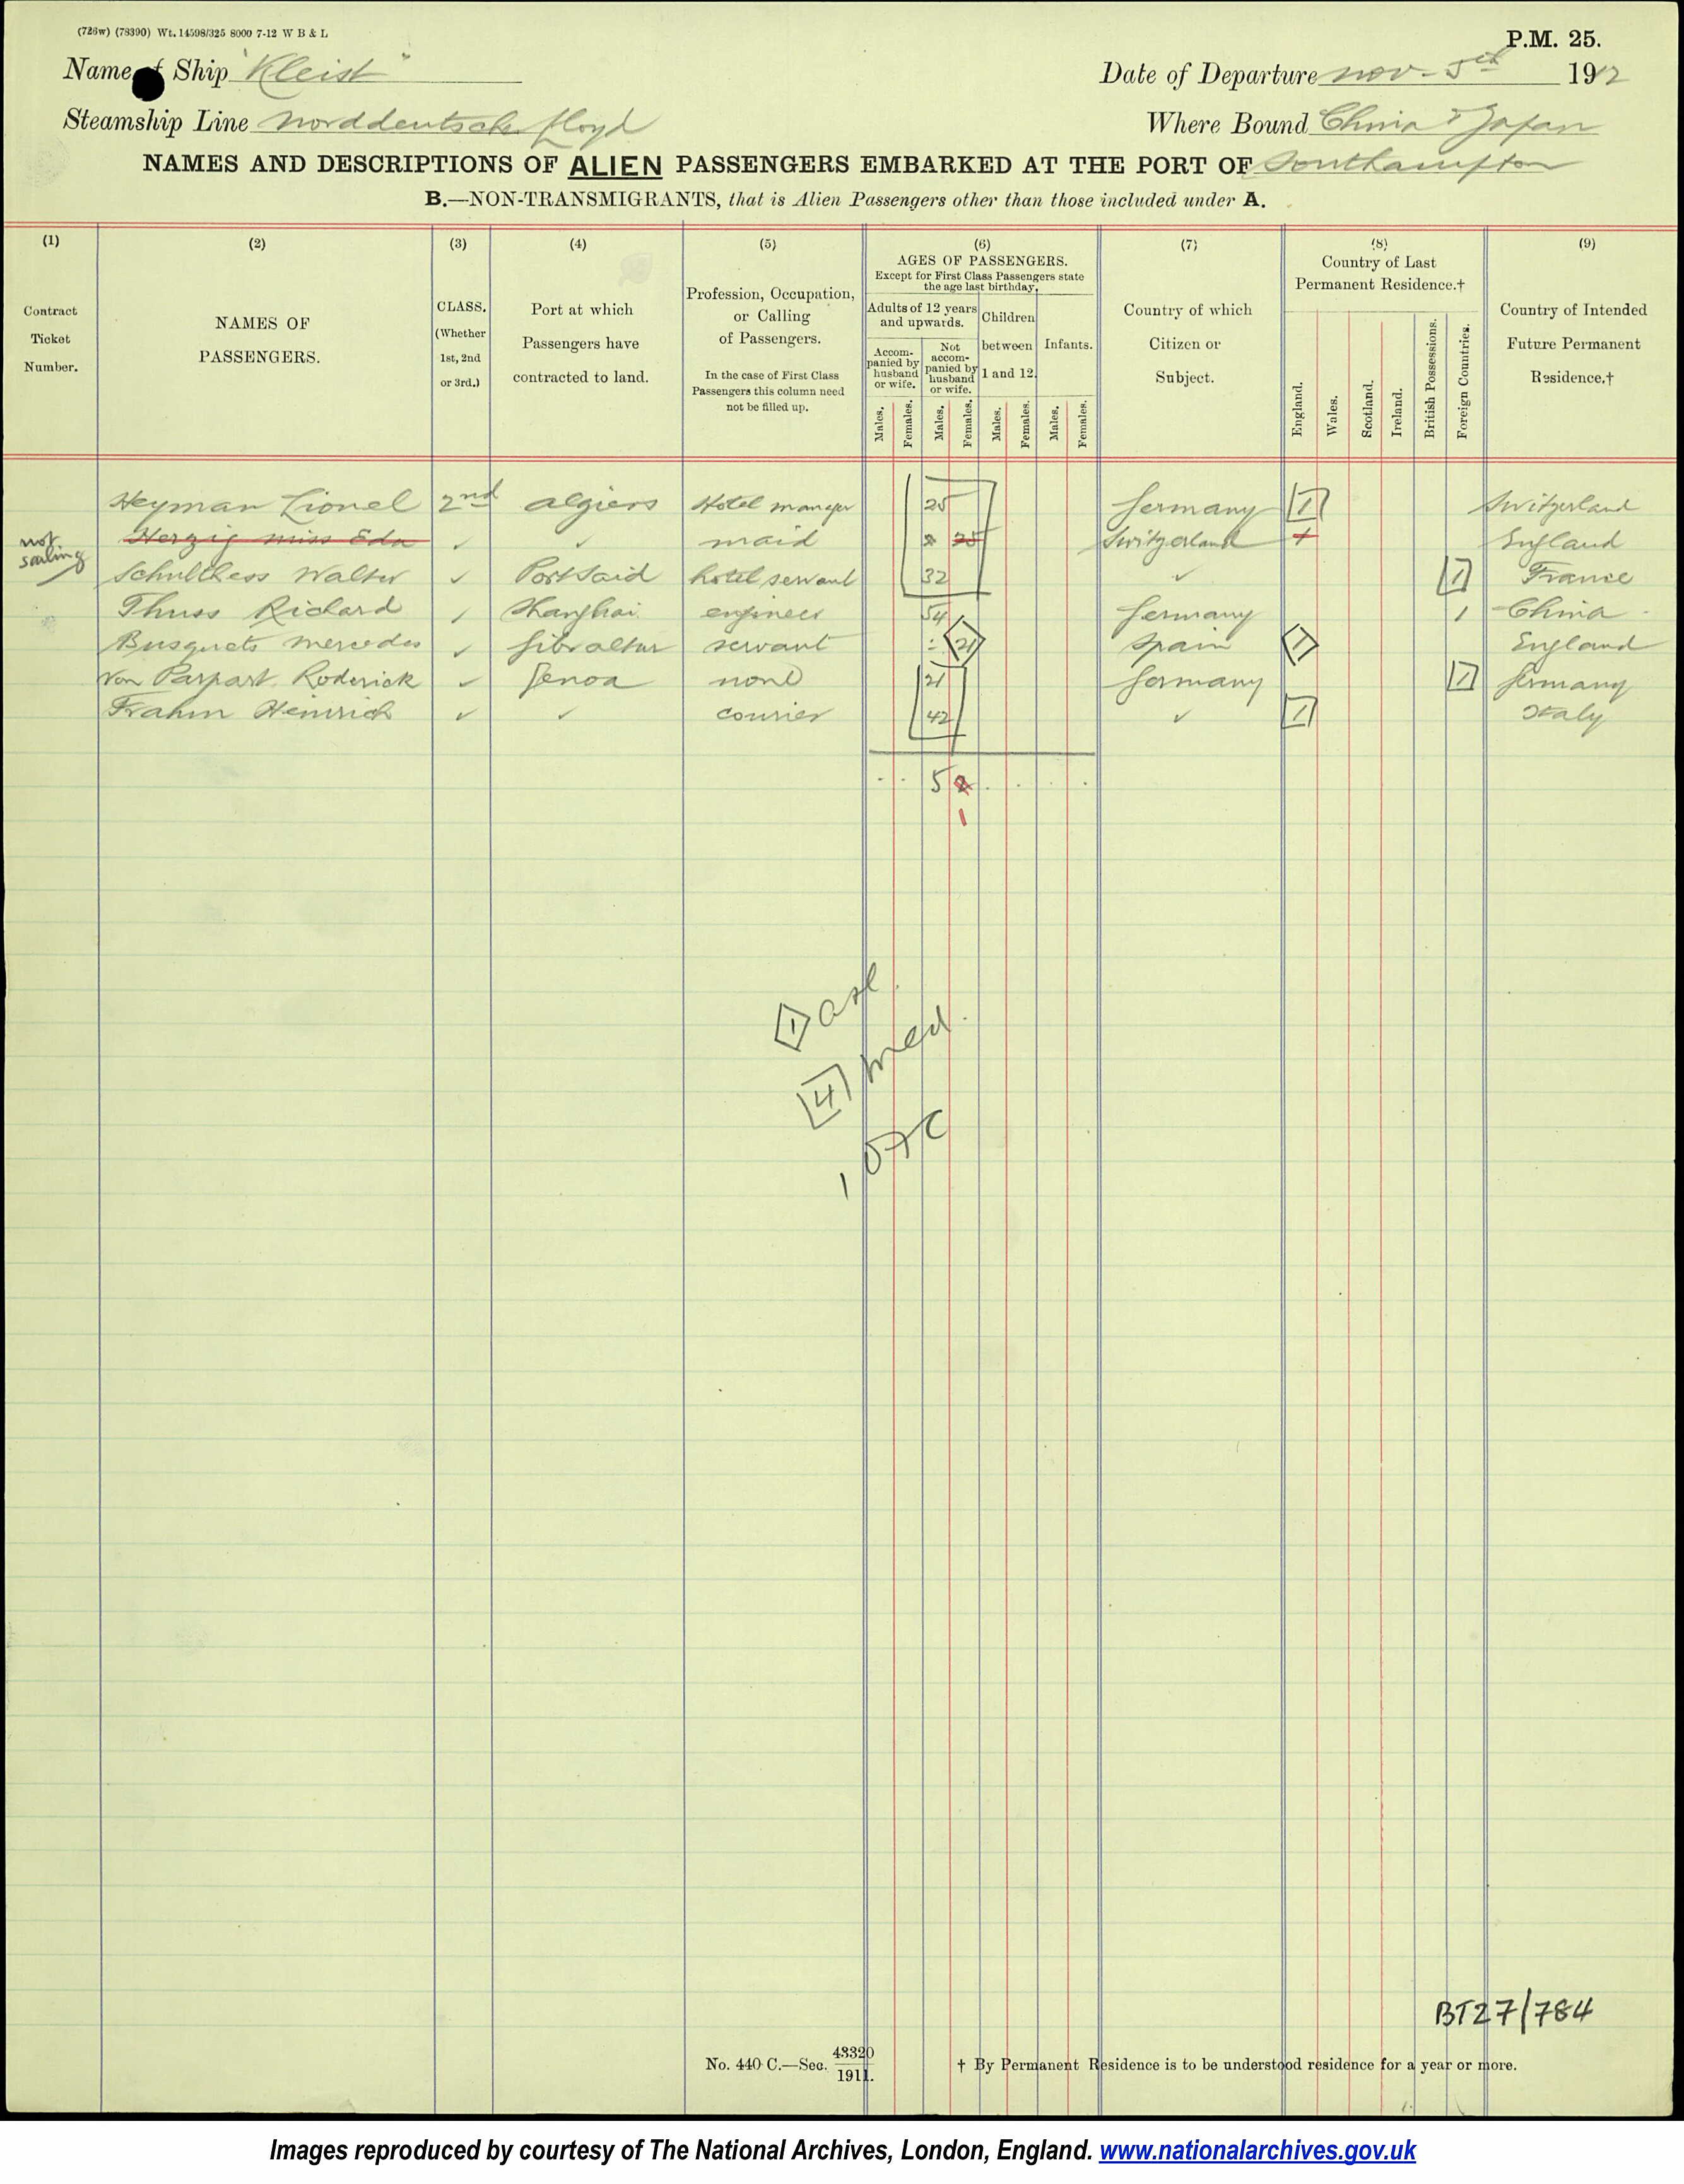 (726w) (78390) Wt. 14598/325 8000 7-12 W B & L
P.M. 25.
Name of Ship "Kleist"
Date of Departure Nov. 5th 1912
Steamship Line Norddeutsche Lloyd
Where Bound China & Japan
NAMES AND DESCRIPTIONS OF ALIEN PASSENGERS EMBARKED AT THE PORT OF Southampton
B.—NON-TRANSMIGRANTS, that is Alien Passengers other than those included under A.
(1) (2) (3) (4) (5) (6) (7) (8) (9)
Contract Ticket Number.
NAMES OF PASSENGERS.
CLASS. (Whether 1st, 2nd or 3rd.)
Port at which Passengers have contracted to land.
Profession, Occupation, or Calling of Passengers.
In the case of First Class Passengers this column need not be filled up.
AGES OF PASSENGERS.
Except for First Class Passengers state the age last birthday.
Adults of 12 years and upwards.
Accompanied by husband or wife.
Not accompanied by husband or wife.
Children between 1 and 12.
Infants.
Males. Females. Males. Females. Males. Females. Males. Females.
Country of which Citizen or Subject.
Country of Last Permanent Residence.†
England. Wales. Scotland. Ireland. British Possessions. Foreign Countries.
Country of Intended Future Permanent Residence.†
Heyman Lionel 2nd Algiers Hotel manager 25 Germany 1 Switzerland
not sailing Herzig Miss Eda ✓ ✓ maid 25 Switzerland 1 England
Schulthess Walter ✓ Port Said hotel servant 32 ✓ 1 France
Thuss Richard ✓ Shanghai engineer 54 Germany 1 China
Busquets Mercedes ✓ Gibraltar servant 21 Spain 1 England
Von Parpart Roderick ✓ Genoa none 21 Germany 1 Germany
Frahm Heinrich ✓ ✓ courier 42 ✓ 1 Italy
5 2
1
1
4 Med.
1
BT27/784
No. 440 C.—Sec. 43320/1911.
† By Permanent Residence is to be understood residence for a year or more.
Images reproduced by courtesy of The National Archives, London, England. www.nationalarchives.gov.uk